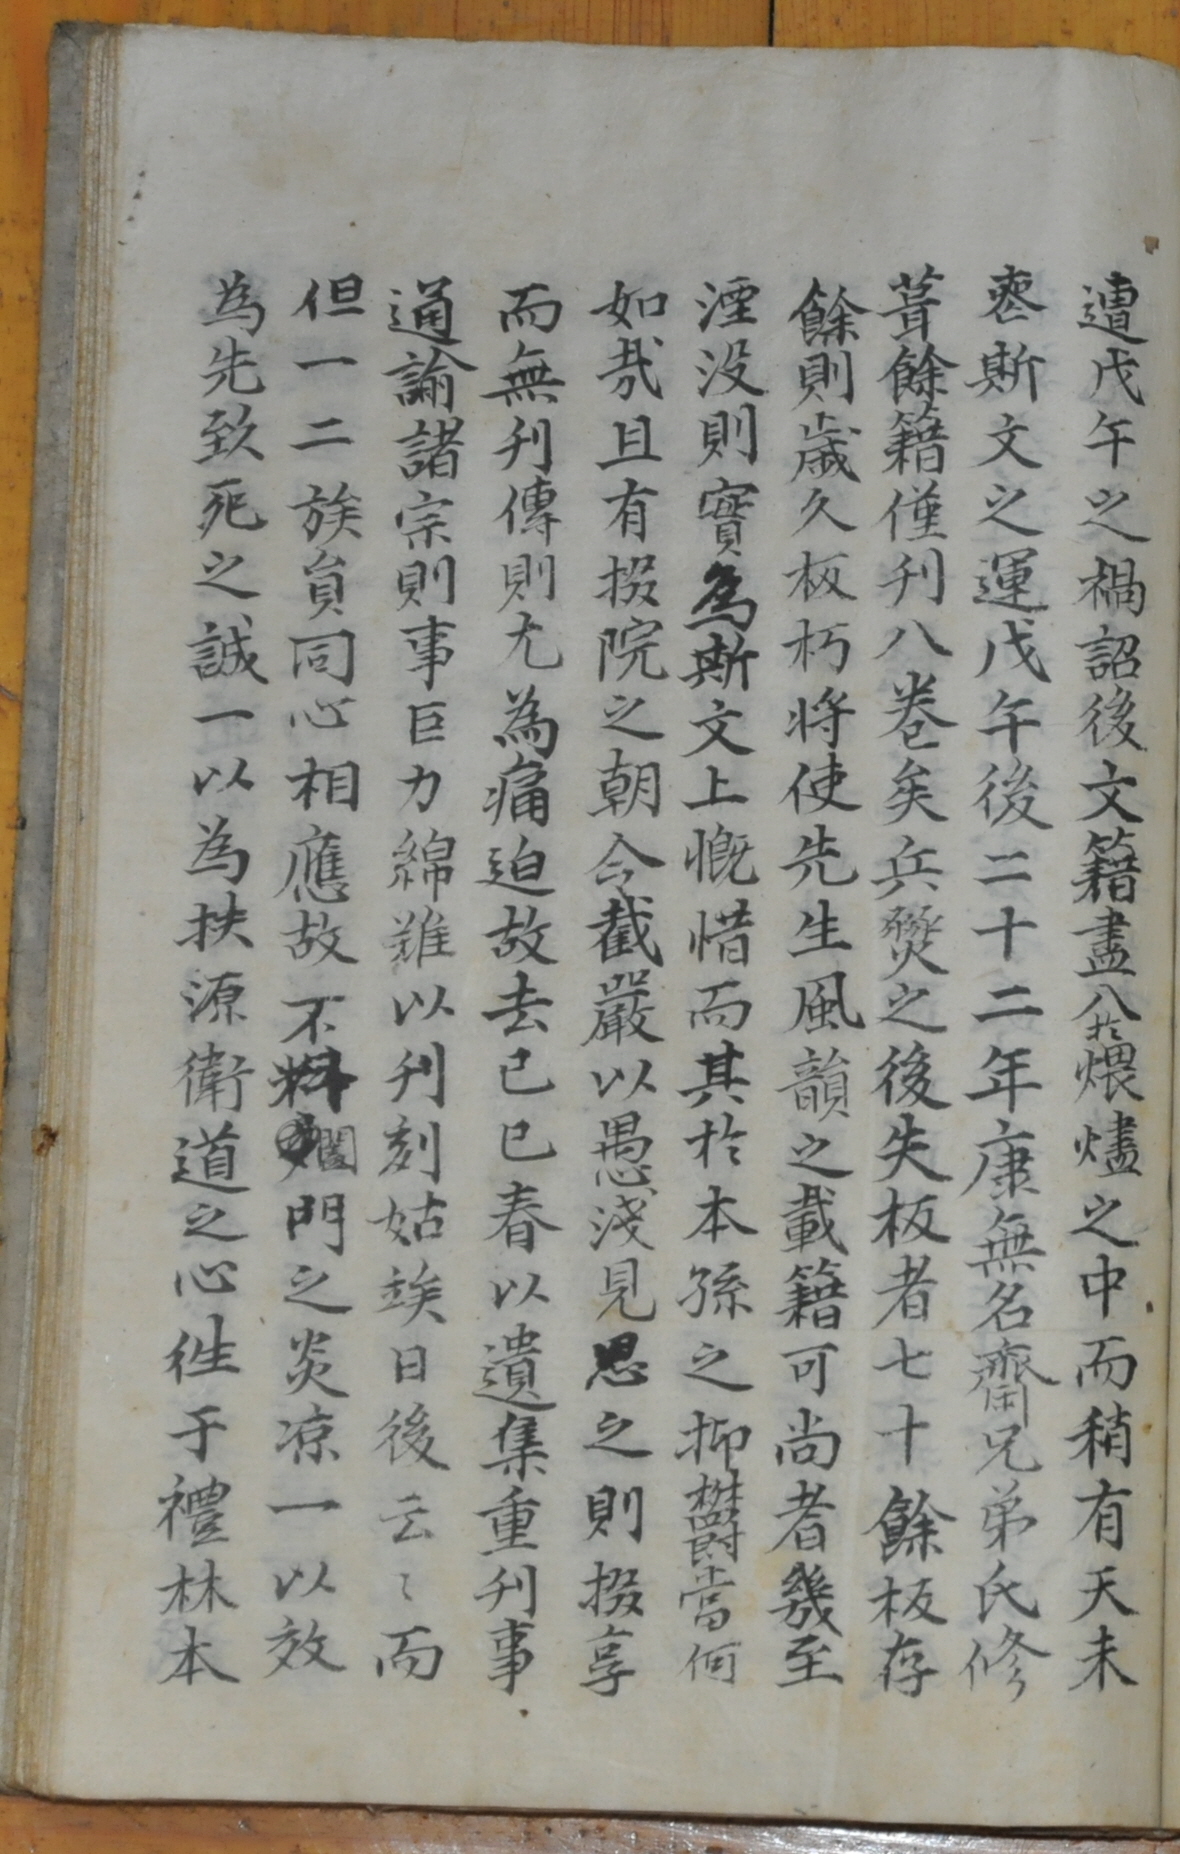 遭戊午之禍詔後文籍盡入於煨燼之中而稍有天未
喪斯文之運戊午後二十二年康無名齋兄弟氏修
葺餘籍僅刊八卷矣兵燹之後失板者七十餘板存
餘則歲久板朽將使先生風韻之載籍可尚者幾至
湮没則實為斯文上慨惜而其於本孫之抑欝當何
如哉且有掇院之朝令截嚴以愚淺見思之則掇享
而無刊傳則尤為痛迫故去己巳春以遺集重刊事
通諭諸宗則事巨力綿難以刊刻姑竢日後云〻而
但一二族員同心相應故不料閥門之炎凉一以效
為先致死之誠一以為扶源衛道之心徃于禮林本